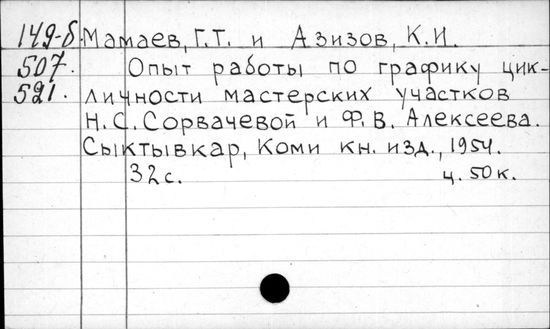 149-б. Мамаев, Г.Т. и Азизов, К.И.
507. Опыт работы по графику цик-
521. личности мастерских участков
Н.С. Сорвачевой и Ф.В. Алексеева.
Сыктывкар, Коми кн. изд., 1954.
32 с. ц. 50 к.